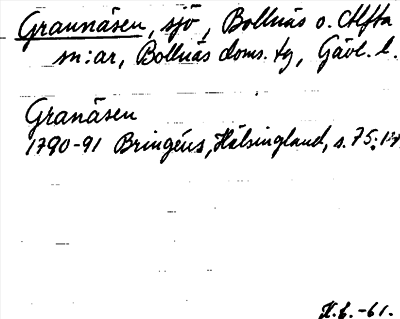 Grannäsen, sjö, Bollnäs o. Alfta
sn:ar, Bollnäs doms. tg, Gävl. l.
Granäsen
1790-91 Bringéus, Hälsingland, s. 75:17
H.E. -61.